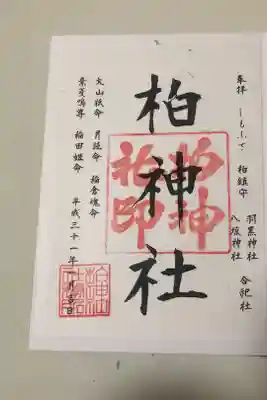 奉拝 しもふさ 柏鎮守
羽黒神社
八坂神社
合祀社
柏神社
柏神
社印
大山祇命 月読命 稲倉魂命
素戔嗚尊 稲田姫命
平成三十一年一月吉日